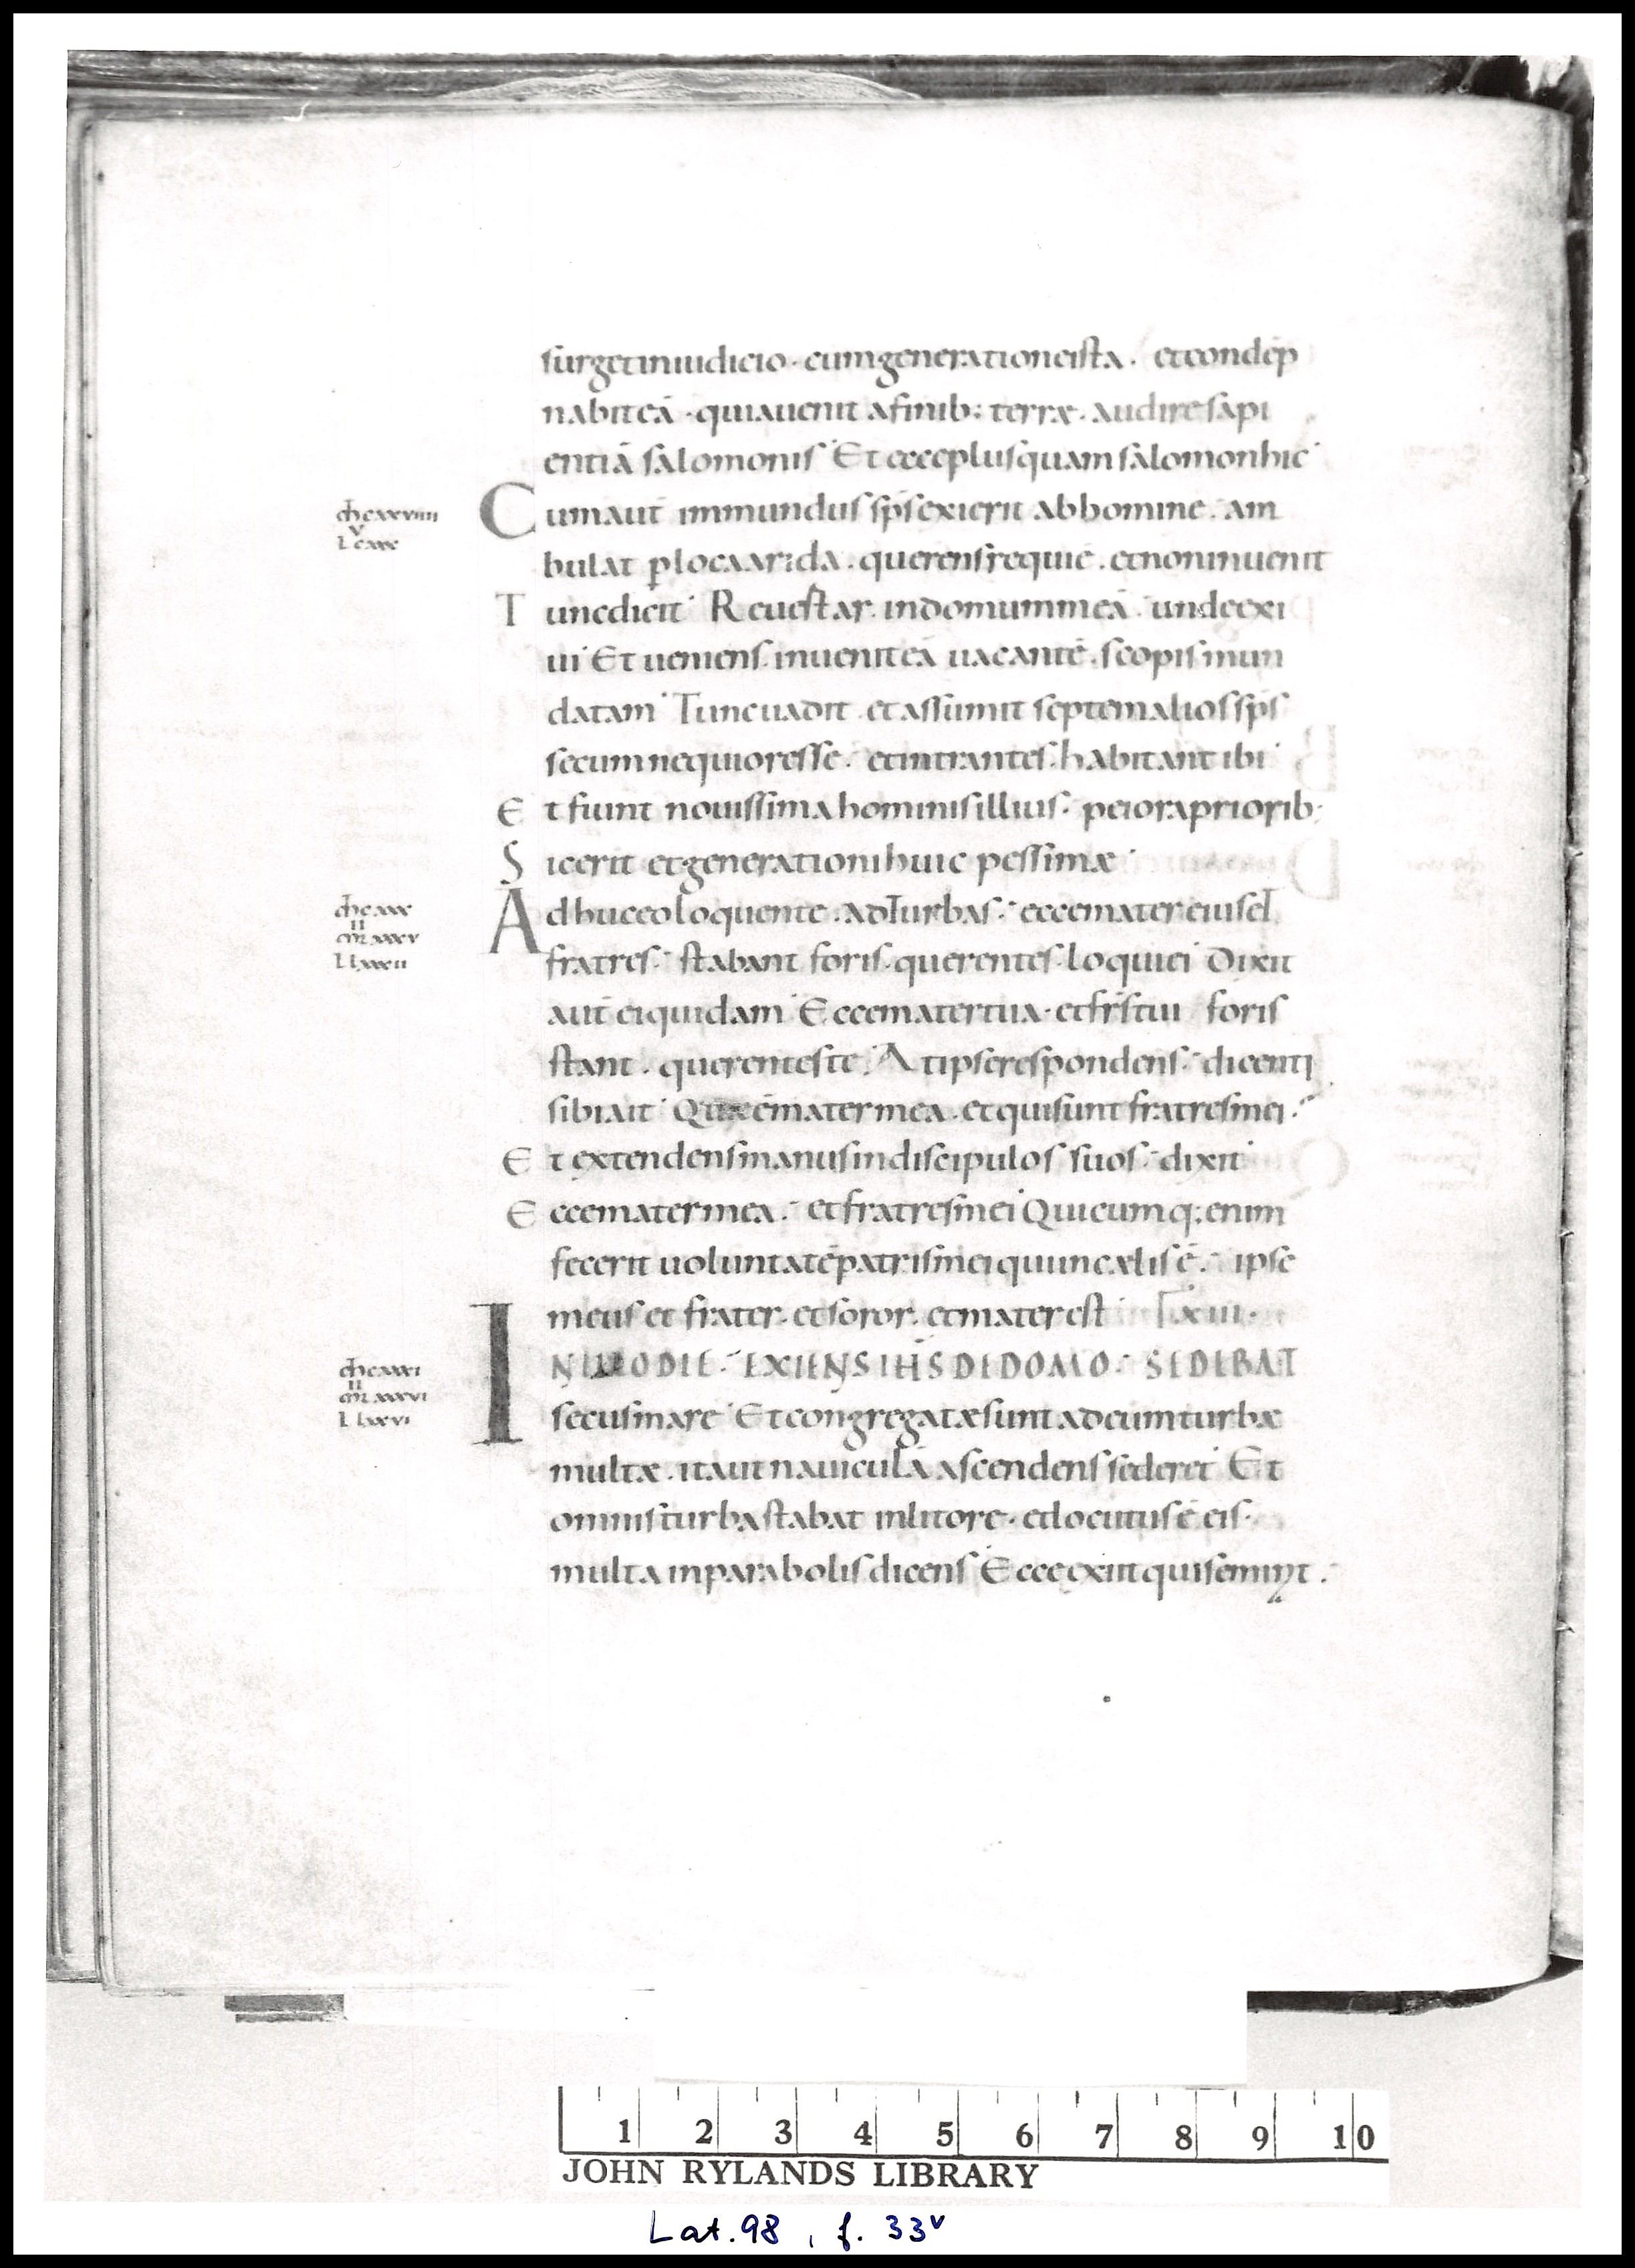 surget in iudicio · cum generatione ista . et condep
nabit eā · quia uenit a finib: terræ . audire sapi
entiā salomonis Et ecce plus quam salomon hic
Cum aut̄ immundus sp̄s exierit ab homine . am
bulat p loca arida . querens requiē . et non inuenit
Tunc dicit Reuertar in domum meā unde exi
ui Et ueniens inuenit eā uacantē . scopis mun
datam Tunc uadit et assumit septem alios sp̄s
secum nequiores se . et intrantes habitant ibi
Et fiunt nouissima hominis illius . peiora priorib:
Sic erit et generationi huic pessimæ
Adhuc eo loquente . ad turbas . ecce mater eius et
fratres . stabant foris . querentes loqui ei Dixit
aut̄ ei quidam Ecce mater tua . et fr̄s tui foris
stant . querentes te . At ipse respondens . dicenti
sibi ait Quæ ē mater mea . et qui sunt fratres mei .
Et extendens manus in discipulos suos . dixit
Ecce mater mea . et fratres mei Quicumq; enim
fecerit uoluntatē patris mei qui in cælis ē . ipse
meus et frater . et soror . et mater est
IN ILLO DIE . EXIENS IHS DE DOMO . SEDEBAT
secus mare Et congregatæ sunt ad eum turbæ
multæ . ita ut nauiculā ascendens sederet Et
omnis turba stabat in litore . et locutus ē eis .
multa in parabolis dicens Ecce exiit qui seminat .
ch cxxviiii
V
L cxxx
ch cxxx
II
mr xxxv
L lxxxii
ch cxxxi
II
mr xxxvi
L lxxvi
1 2 3 4 5 6 7 8 9 10
JOHN RYLANDS LIBRARY
Lat. 98 , f. 33v